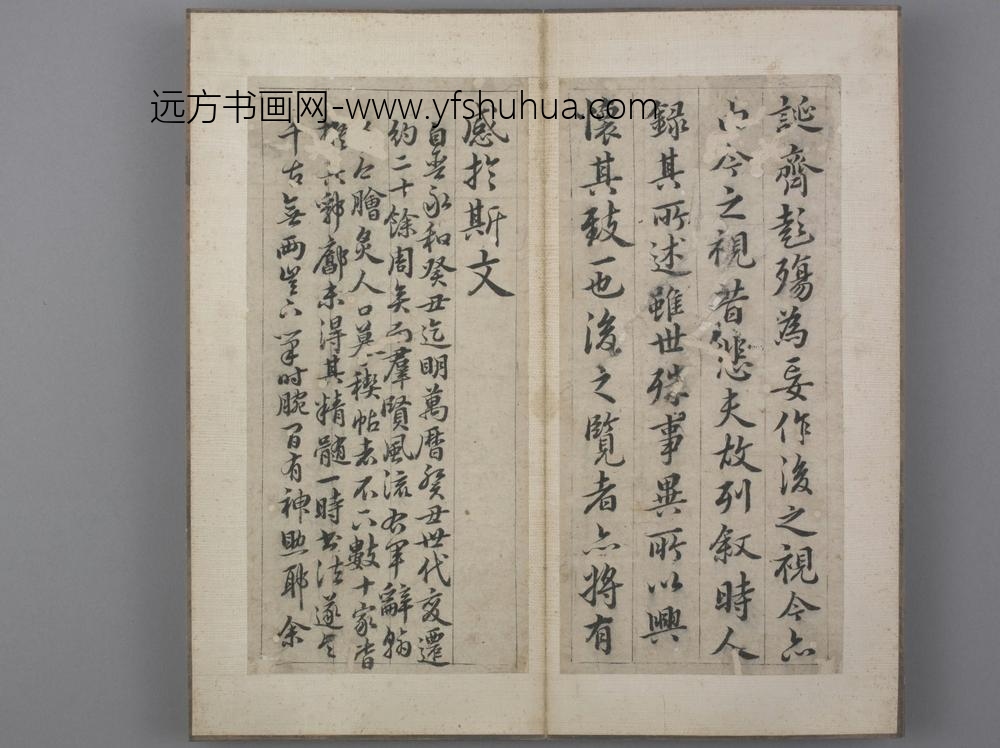 远方书画网-www.yfshuhua.com
誕齊彭殤為妄作後之視今亦
由今之視昔悲夫故列叙時人
録其所述雖世殊事異所以興
懷其致一也後之覽者亦將有
感於斯文
自晉永和癸丑迄明萬曆癸丑世代変遷
約二十餘周矣而羣賢風流右軍辭翰
人膾炙人口莫稧帖者不下數十家皆
未得其精髓一時書法遂
千古無兩豈下筆時腕間有神助耶余